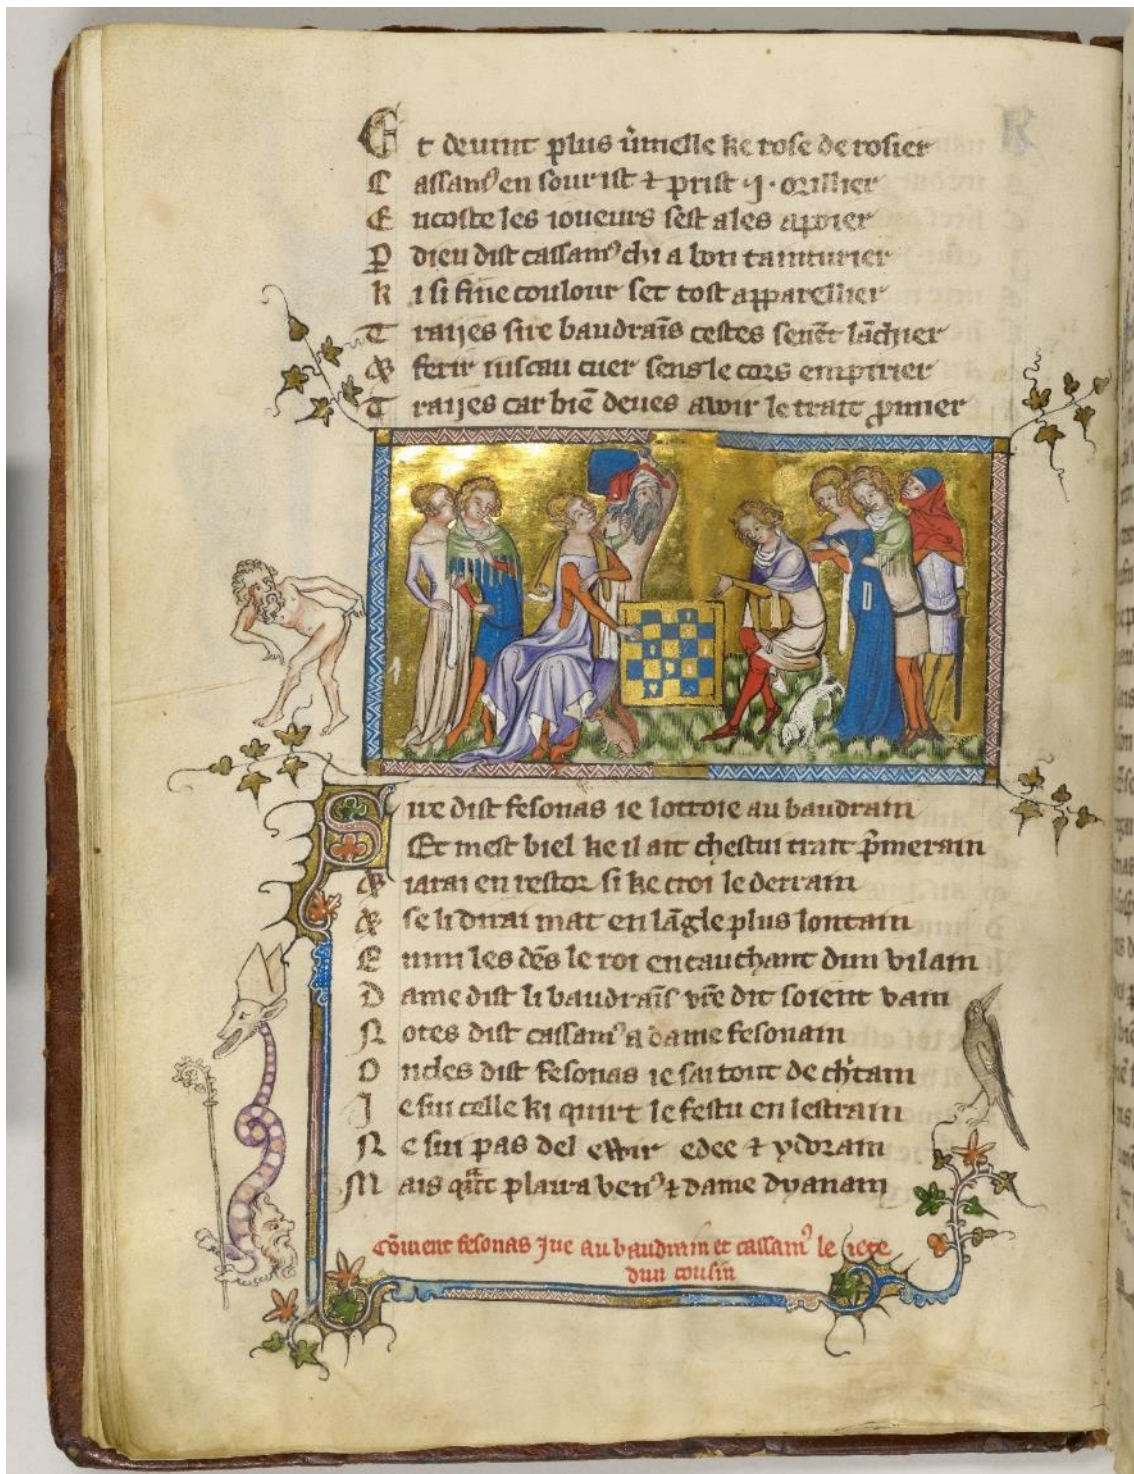 Et deuint plus v̾meille ke rose de rosier
Cassan⁹ en sourist ⁊ prist ·j· orillier
Encoste les ioueurs sest ales apoier
P̱ dieu dist cassam⁹ chi a bon tainturier
Ki si fine coulour set tost apparellier
Traijes sire baudrai̅s cestes seue̅t la̅chier
⁊ ferir iuscau cuer sens le cors empirier
Traijes car bie̅ deues avoir le trait p̾mier
Sire dist fesonas ie lottroie au baudrain
Et mest biel ke il ait chestui trait p̾merain
⁊ iarai en restor si ke croi le derrain
⁊ se li dirai mat en la̅gle plus lontain
Enmi les de̅s le roi encauchant dun vilain
Dame dist li baudrai̅s vr̅e dit soient vain
Notes dist cassam⁹ a dame fesonain
Oncles dist fesonas ie sai tout de ch̾tain
Je sui celle ki quirt le festu en lestrain
Ne sui pas del edee ⁊ ydorain
Mais q̾nt plaira ven⁹ ⁊ dame dyanain
Co̅ment fesonas Jue au baudrain et cassam⁹ le
dun cousin